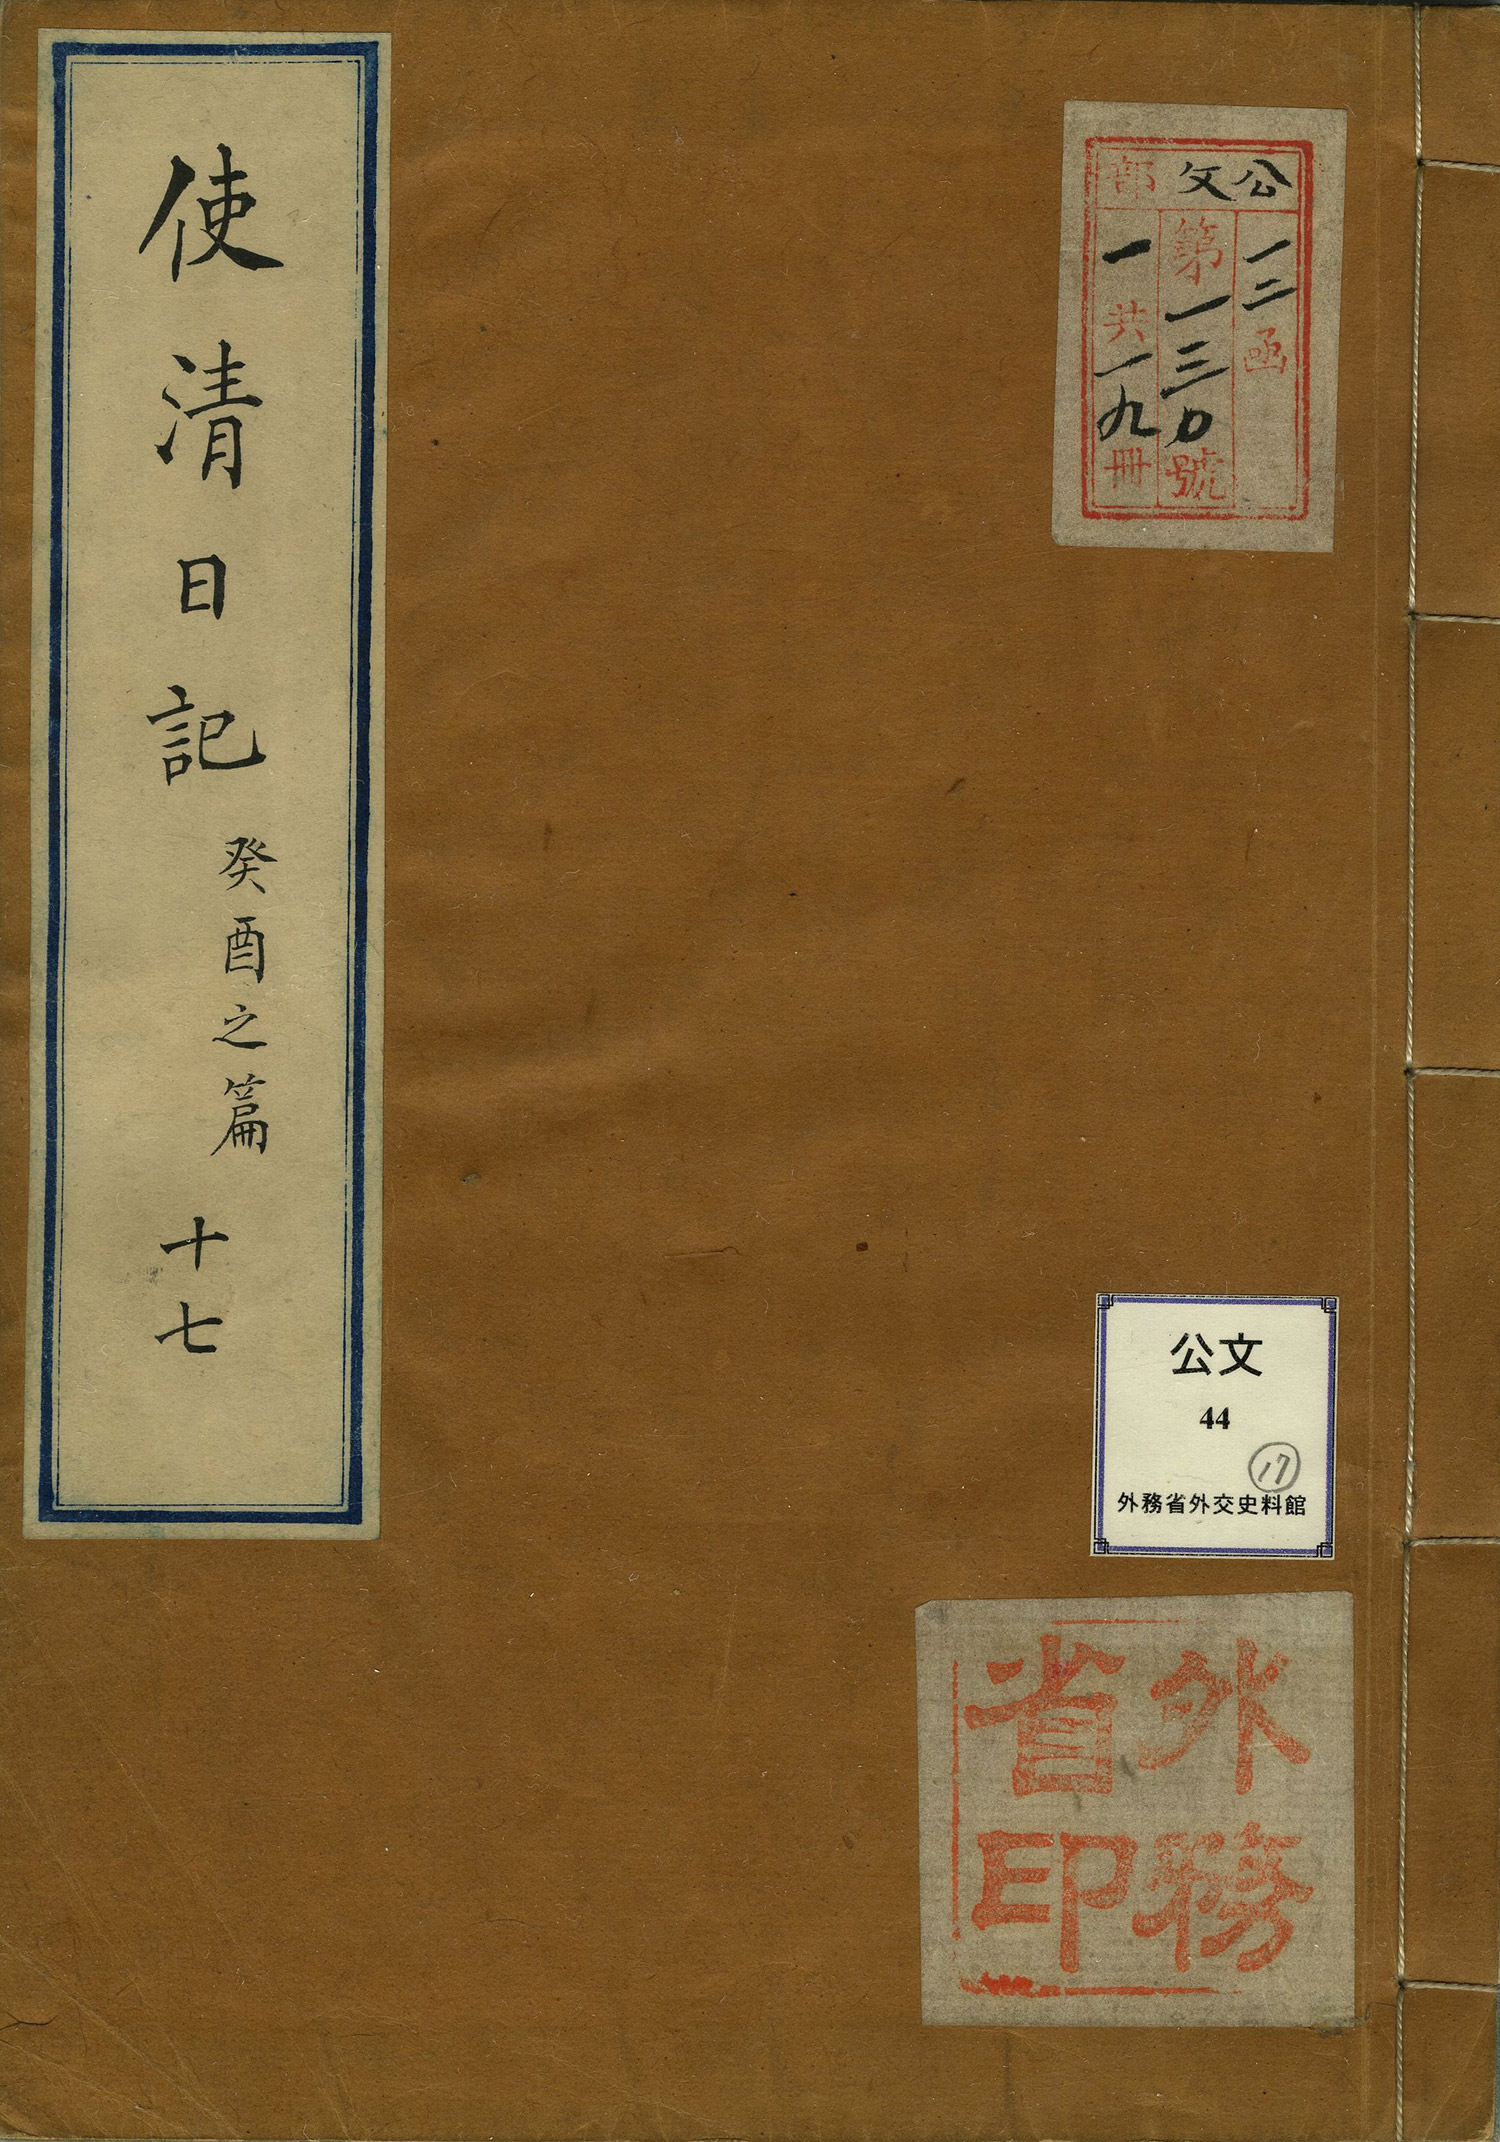 使清日記 癸酉之篇 十七
公文部
一二函
第一三〇號
一共一九冊
公文
44
17
外務省外交史料館
外務
省印